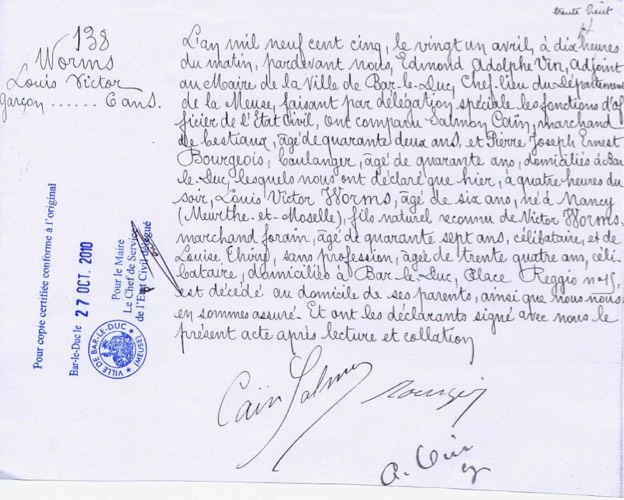 trente huit
138
Worms
Louis Victor
garçon ...... 6 ans.
L'an mil neuf cent cinq, le vingt un avril, à dix heures
du matin, pardevant nous, Edmond Adolphe Vin, adjoint
au Maire de la Ville de Bar-le-Duc, Chef-lieu du Département
de la Meuse, faisant par délégation spéciale les fonctions d'Of
ficier de l'Etat Civil, ont comparu Salmon Caïn, marchand
de bestiaux, âgé de quarante deux ans, et Pierre Joseph Ernest
Bourgeois, boulanger, âgé de quarante ans, domiciliés à Bar
le-Duc, lesquels nous ont déclaré que hier, à quatre heures du
soir, Louis Victor Worms, âgé de six ans, né à Nancy
(Meurthe-et-Moselle), fils naturel reconnu de Victor Worms,
marchand forain, âgé de quarante sept ans, célibataire, et de
Louise, sans profession, âgée de trente quatre ans, céli-
bataire, domiciliés à Bar-le-Duc, Place Reggio nº 15,
est décédé au domicile de ses parents, ainsi que nous nous
en sommes assuré. Et ont les déclarants signé avec nous le
présent acte après lecture et collation
Caïn Salmon
Pour copie certifiée conforme à l'original
Bar-le-Duc le 27 OCT. 2010
Pour le Maire
Le Chef de Service
de l'Etat Civil délégué
VILLE DE BAR-LE-DUC
(MEUSE)